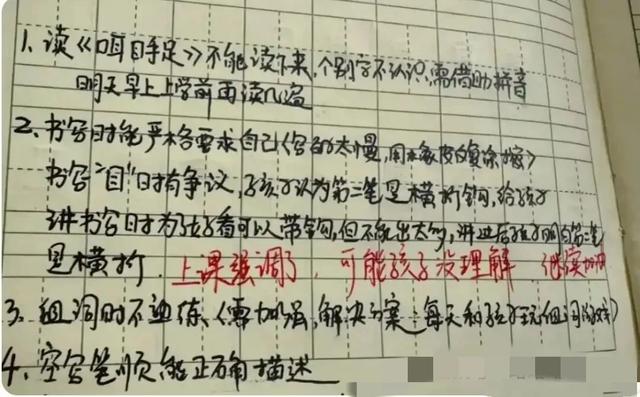 1、读《口耳目手足》不能读下来，个别字不认识，需借助拼音
明天早上上学前再读几遍
2、书写时能严格要求自己（写的太慢，用橡皮反复涂擦）
书写“目”时有争议，孩子认为第二笔是横折钩，给孩子
讲书写时为了好看可以带钩，但不能出太多，讲过后孩子明白第二笔
是横折． 上课强调了，可能孩子没理解 继续加油
3、组词时不熟练、（需加强，解决方案：每天和孩子玩组词游戏）
4、空写笔顺能正确描述